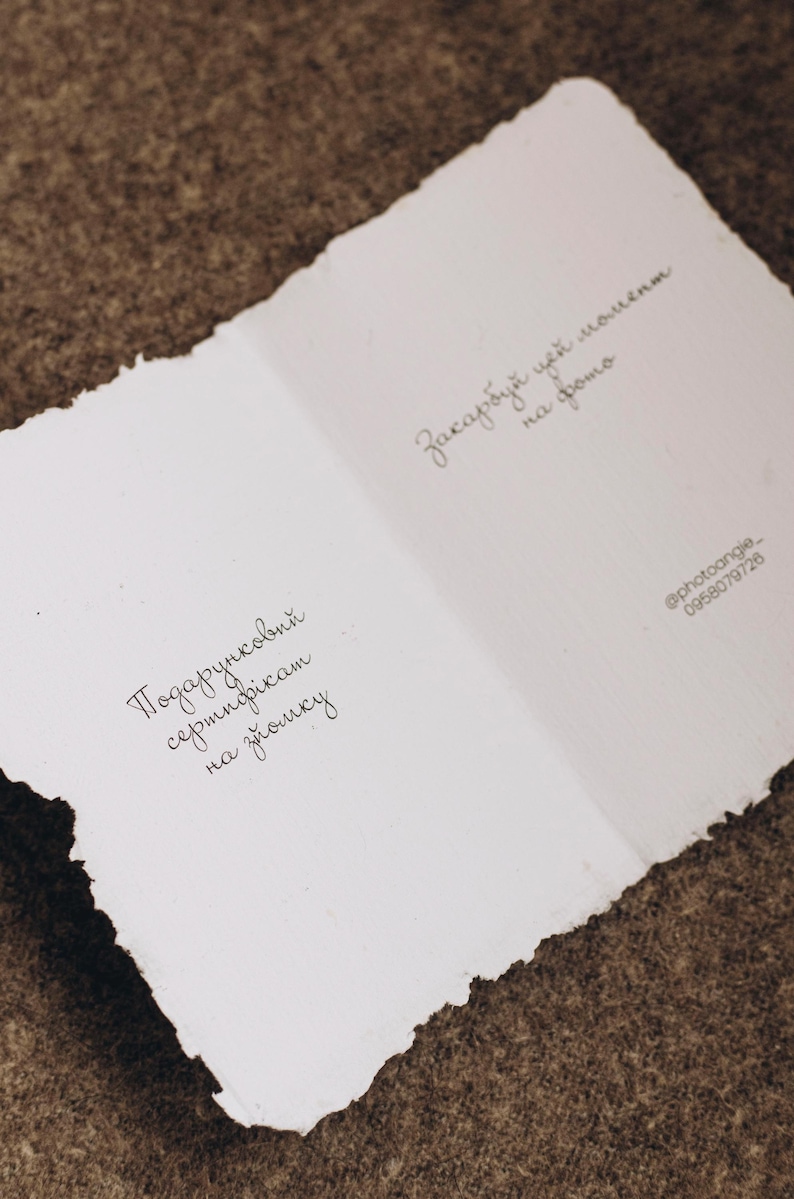 Подарунковий
сертифікат
на зйомку
Закарбуй цей момент
на фото
@photoangie_
0958079726